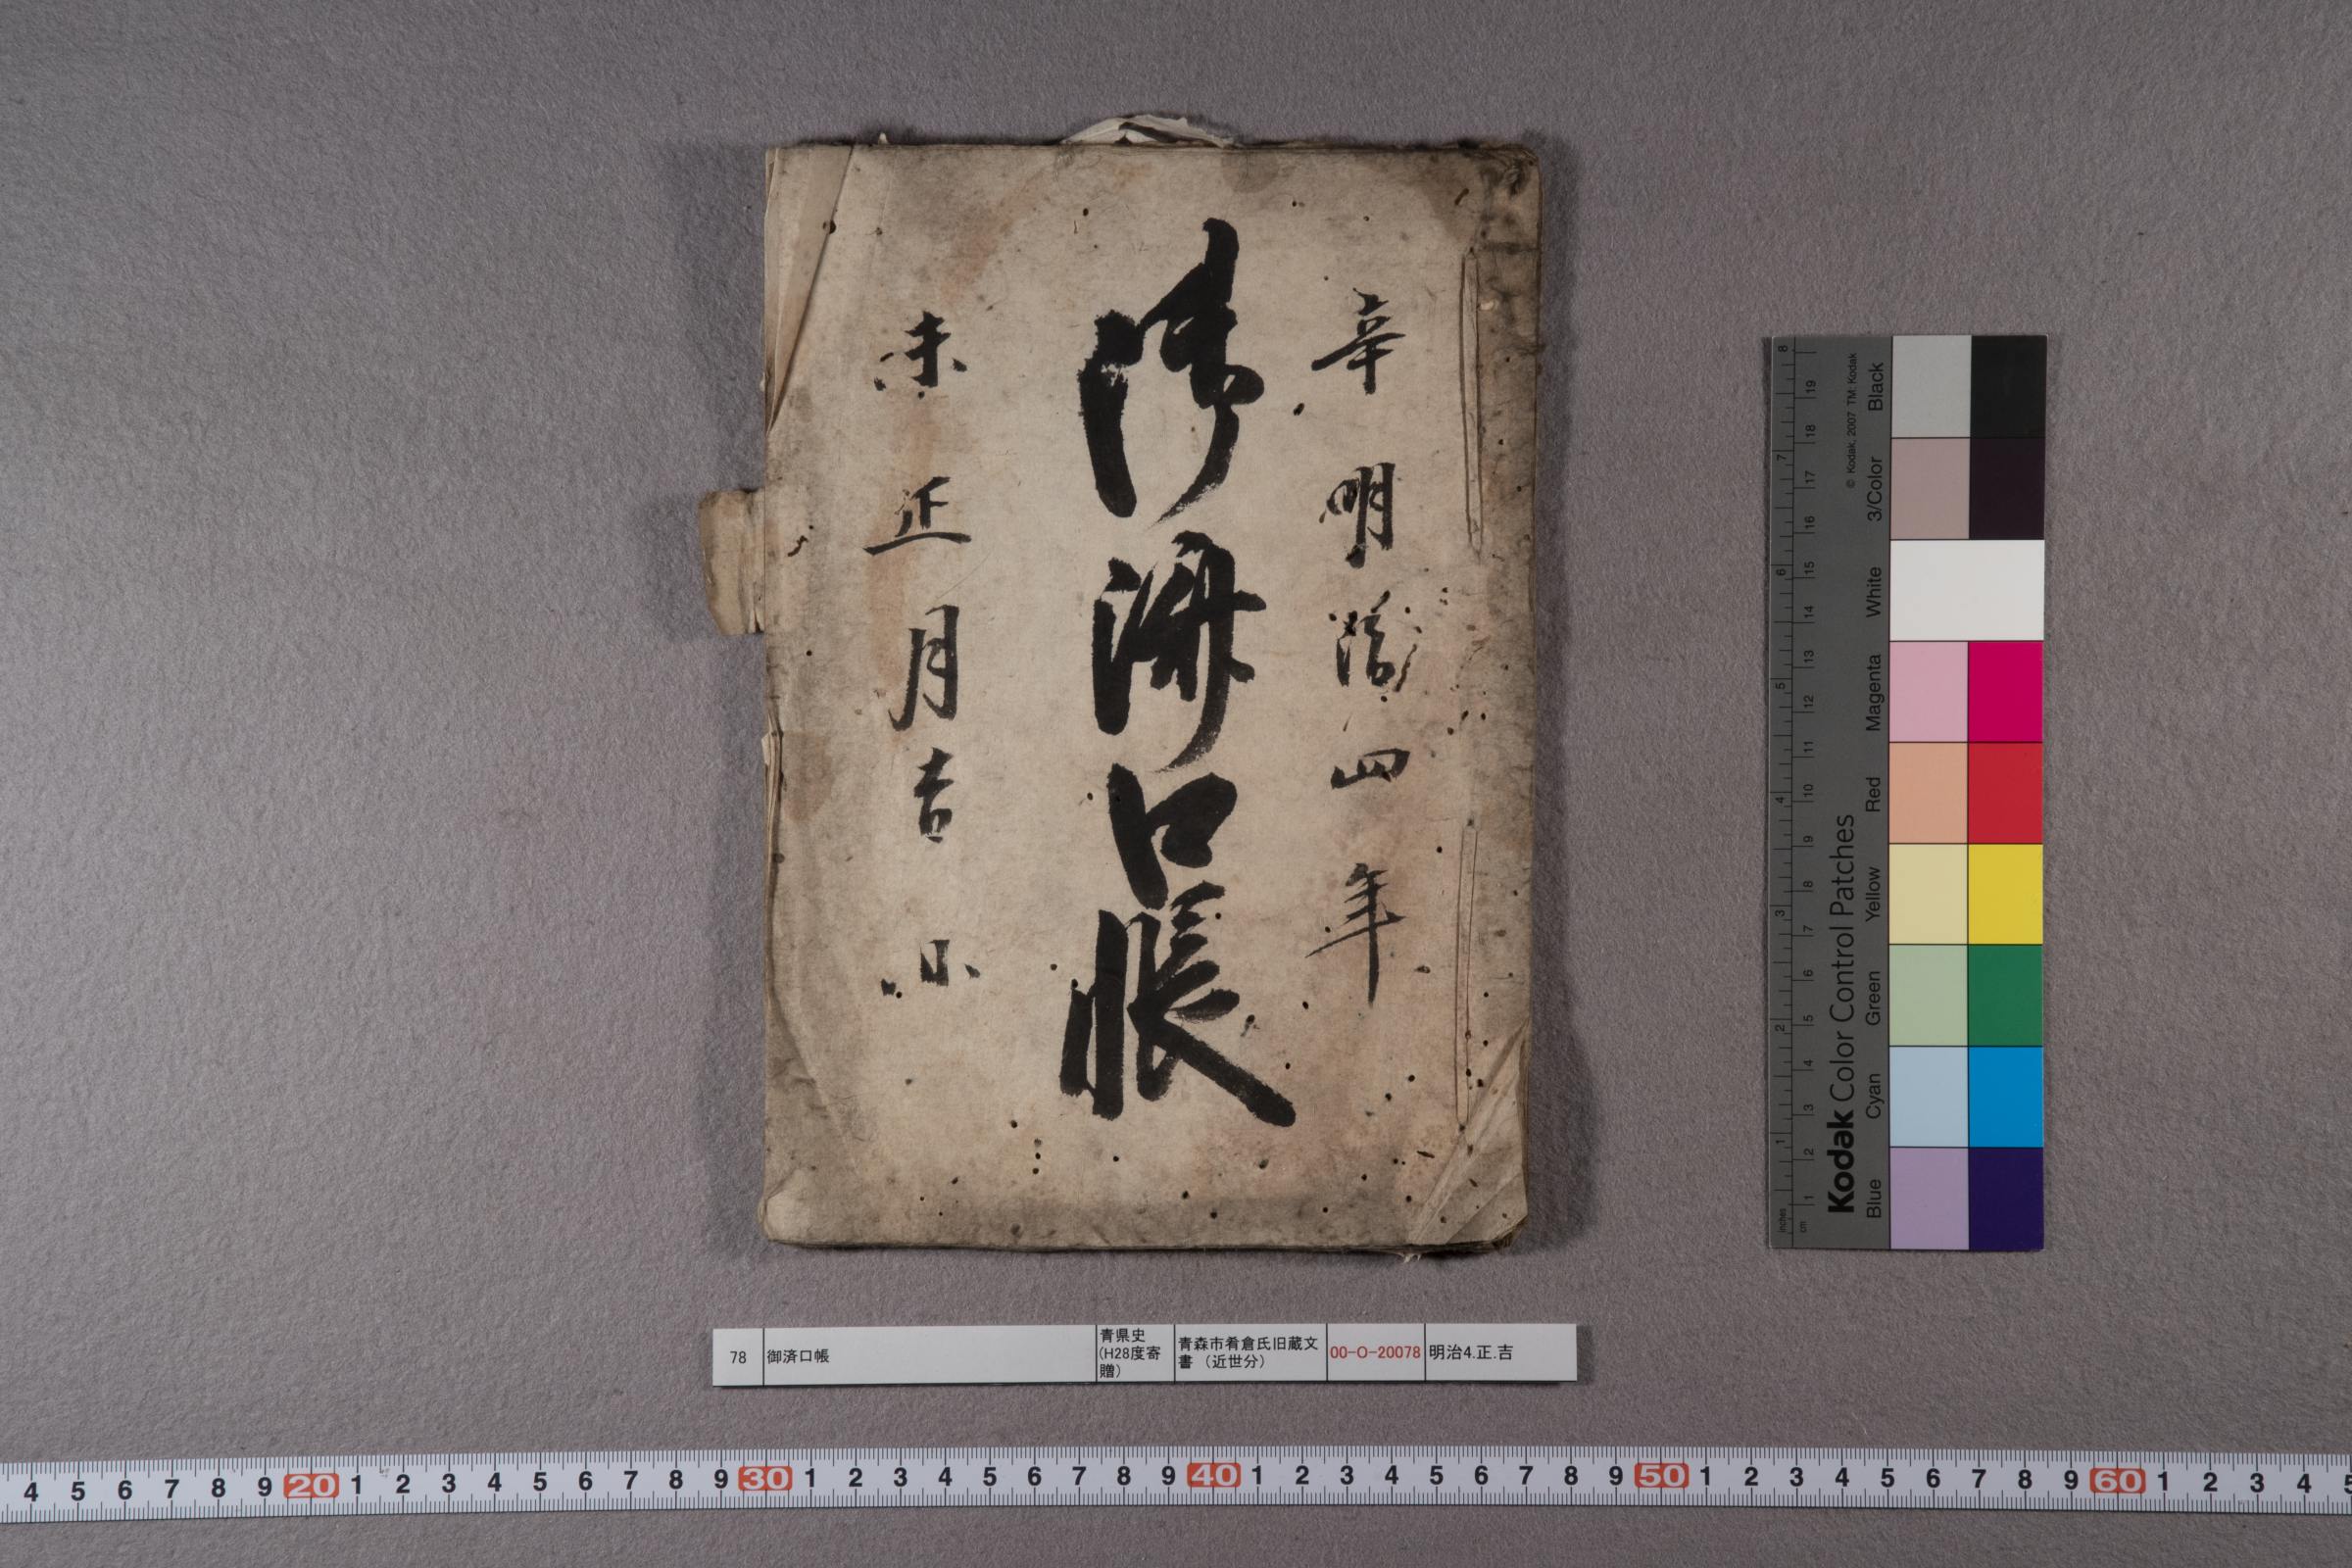 辛明治四年
御済口帳
未正月吉日
78
御済口帳
青県史
(H28度寄
贈)
青森市肴倉氏旧蔵文
書（近世分）
00-O-20078
明治4.正.吉
Kodak Color Control Patches
© Kodak, 2007 TM: Kodak
Blue Cyan Green Yellow Red Magenta White 3/Color Black
inches 1 2 3 4 5 6 7 8
cm 1 2 3 4 5 6 7 8 9 10 11 12 13 14 15 16 17 18 19
4 5 6 7 8 9 20 1 2 3 4 5 6 7 8 9 30 1 2 3 4 5 6 7 8 9 40 1 2 3 4 5 6 7 8 9 50 1 2 3 4 5 6 7 8 9 60 1 2 3 4 5